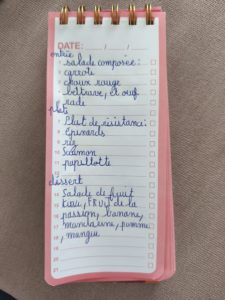 DATE: / /
entrée
salade composée:
carrote
choux rouge
bettrave, et oeuf
rade
plats
Plat de résistance:
Epinards
riz
Saumon
papillotte
dessert
Salade de fruit
kiwi, fruit de la
passion, banane,
mandarine, pomme
mangue